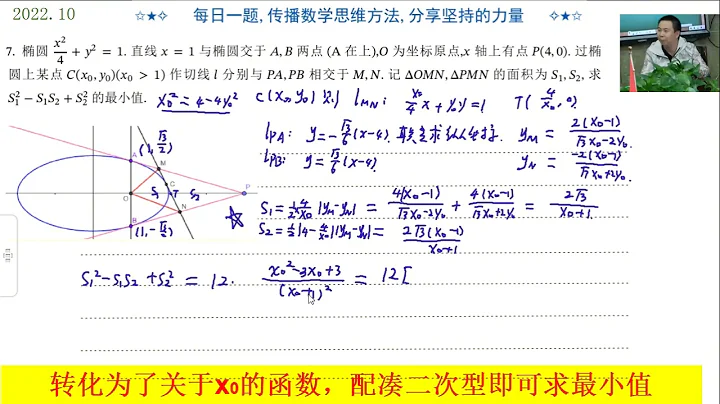 2022.10 ☆★☆ 每日一题,传播数学思维方法,分享坚持的力量 ☆★☆
7. 椭圆 x²/4 + y² = 1. 直线 x = 1 与椭圆交于 A, B 两点 (A 在上),O 为坐标原点,x 轴上有点 P(4,0). 过椭
圆上某点 C(x₀, y₀)(x₀ > 1) 作切线 l 分别与 PA, PB 相交于 M, N. 记 ΔOMN, ΔPMN 的面积为 S₁, S₂, 求
S₁² − S₁S₂ + S₂² 的最小值. x₀² = 4-4y₀² C(x₀, y₀) 则 l_MN: x₀/4 x + y₀y = 1 T(4/x₀, 0)
l_PA: y = -√3/6 (x-4). 联立求纵坐标. y_M = 2(x₀-1)/(√3x₀-2y₀)
l_PB: y = √3/6 (x-4) y_N = -2(x₀-1)/(√3x₀+2y₀)
(1, √3/2)
A
M
C
O S₁ T S₂ P
N
B
(1, -√3/2)
S₁ = 1/2 · 4/x₀ |y_M - y_N| = 4(x₀-1)/(√3x₀-2y₀) + 4(x₀-1)/(√3x₀+2y₀) = 2√3/(x₀+1)
S₂ = 1/2 |4 - 4/x₀| |y_M - y_N| = 2√3(x₀-1)/(x₀+1)
S₁² - S₁S₂ + S₂² = 12 · (x₀² - 3x₀ + 3)/(x₀+1)² = 12 [
转化为了关于x₀的函数，配凑二次型即可求最小值